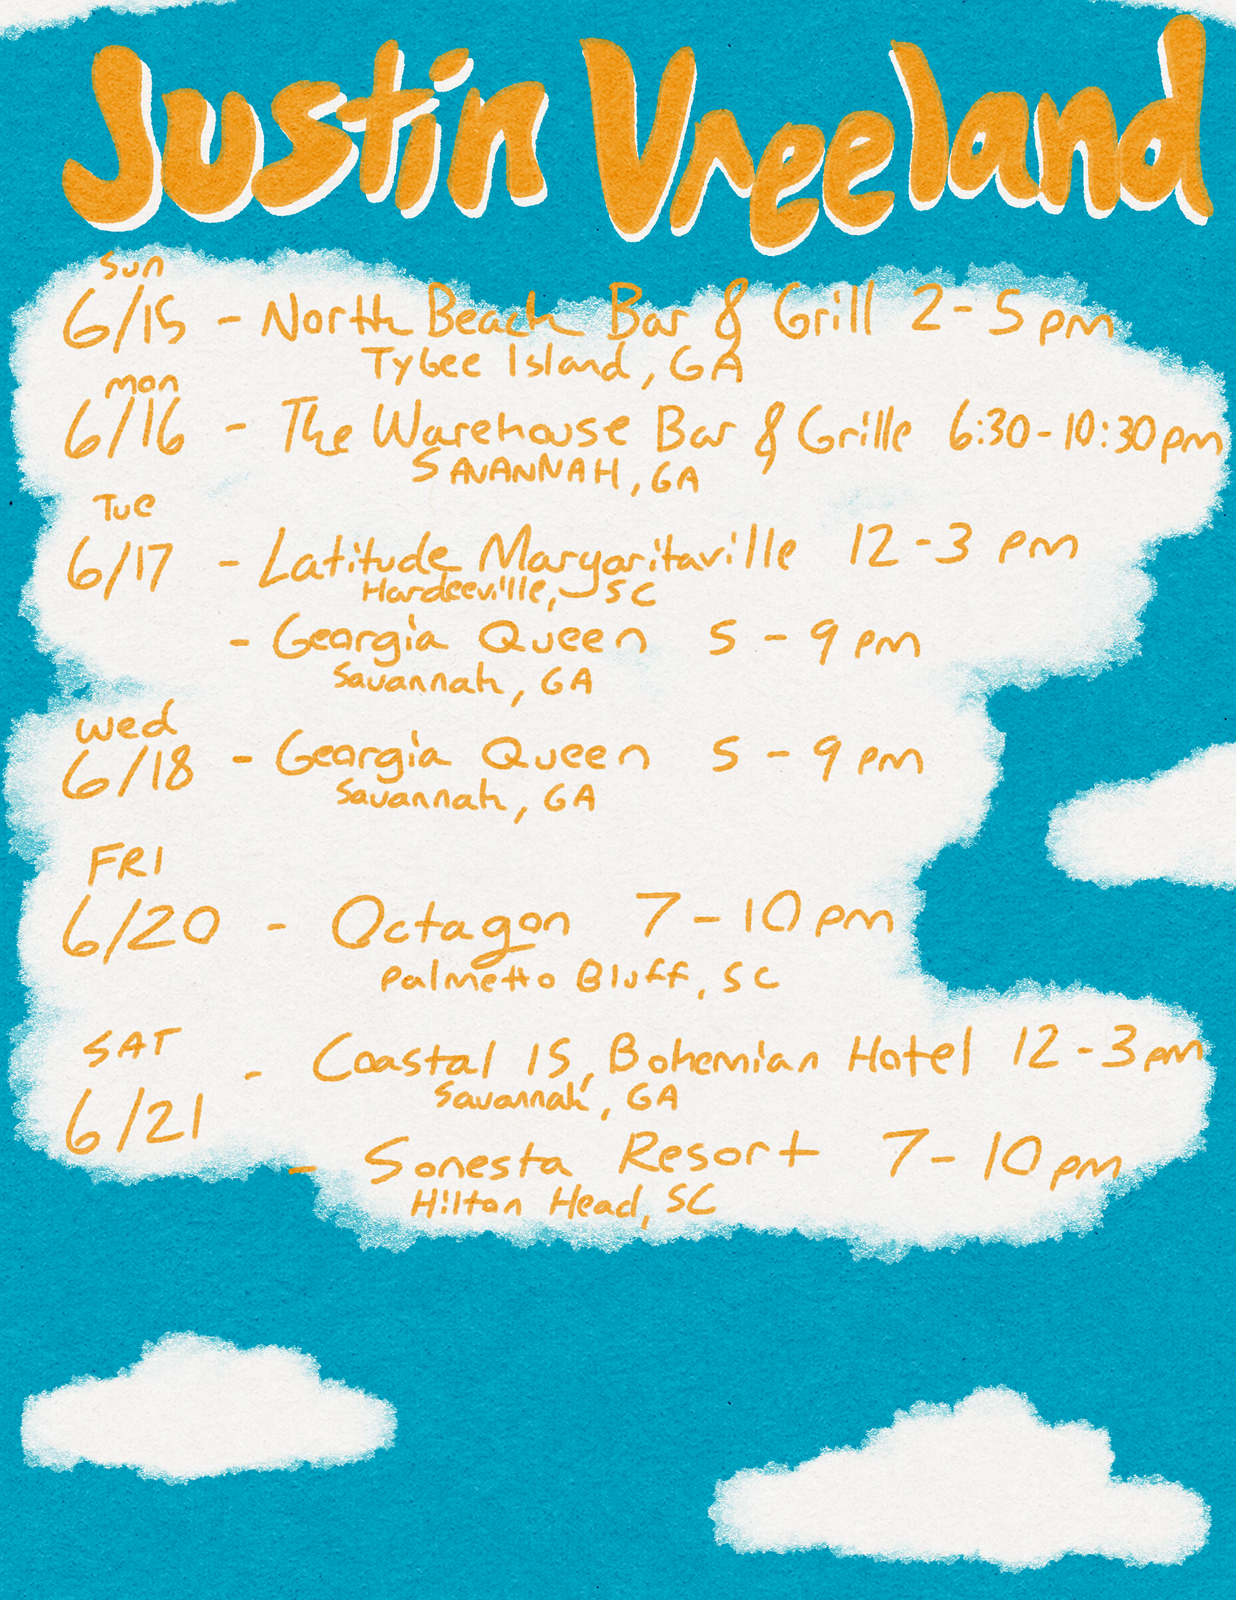 Justin Vreeland
Sun
6/15 - North Beach Bar & Grill 2-5pm
Tybee Island, GA
mon
6/16 - The Warehouse Bar & Grille 6:30-10:30pm
SAVANNAH, GA
Tue
6/17 - Latitude Margaritaville 12-3 pm
Hardeeville, SC
- Georgia Queen 5-9pm
Savannah, GA
Wed
6/18 - Georgia Queen 5-9pm
Savannah, GA
FRI
6/20 - Octagon 7-10pm
Palmetto Bluff, SC
SAT
6/21 - Coastal 15, Bohemian Hotel 12-3pm
Savannah, GA
- Sonesta Resort 7-10pm
Hilton Head, SC